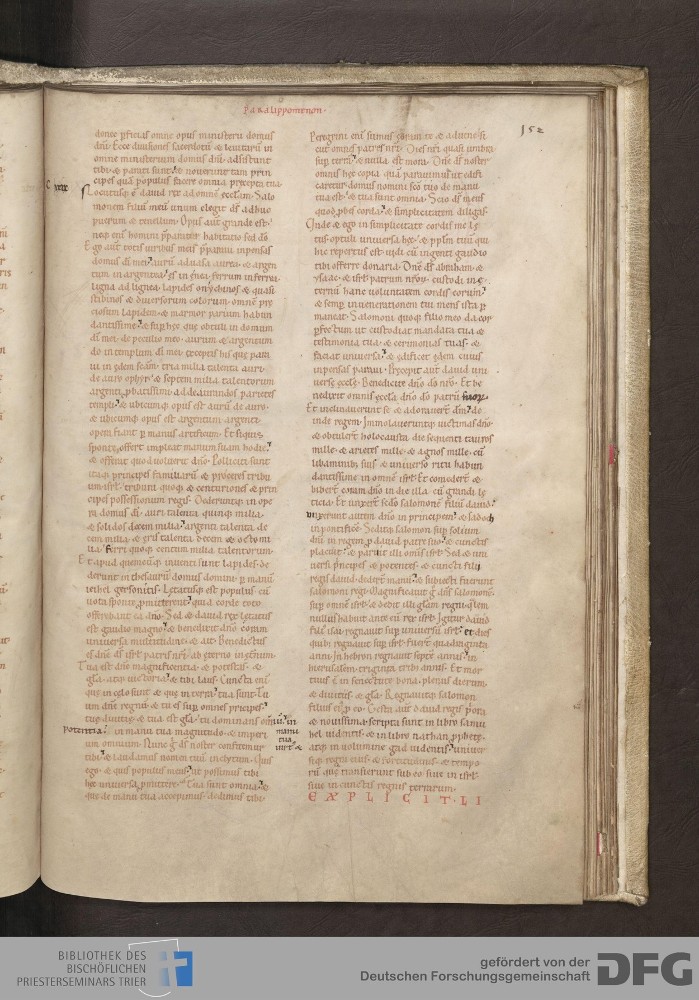 Paralippomenon·
152
donec pficias omne opus ministerii domus
dñi· Ecce divisiones sacerdotũ & levitarũ in
omne ministerium domus dñi· adsistunt
tibi· & parati sunt· & noverunt tam prin
cipes quã populus facere omnia precepta tua·
C xxix
Locutusq; ẽ david rex ad omnẽ ecclam· Salo
monem filiũ meũ unum elegit dš adhuc
puerum & tenellum· Opus aut grande est·
neq; eñi homini pparatur habitatio sed dõ·
Ego aut totis viribus meis pparavi inpensas
domus di mei· aurũ ad vasa aurea· & argen
tum in argentea· ęs in ęnea· ferrum in ferrea·
ligna ad lignea· lapides onychinos & quasi
stibinos & diversorum colorum· omnẽ pre
ciosum lapidem· & marmor parium habun
dantissime· & sup hęc que obtuli in domum
di mei· de peculio meo· aurum & argentum
do in templum di mei· exceptis his que para
vi in ędem scam· tria milia talenta auri·
de auro ophyr· & septem milia talentorum
argenti pbatissimi· ad deaurandos parietes
templi· & ubicumq; opus est aurũ de auro·
& ubicumq; opus est argentum argenti·
opera fiant p manus artificum· Et siquis
sponte offert impleat manum suam hodie·
& offerat quod voluerit dño· Polliciti sunt
itaq; principes familiarũ & proceres tribu
um isrl· tribuni quoq; & centuriones & prin
cipes possessionum regis· Dederuntq; in ope
ra domus di· auri talenta quinq; milia·
& solidos decem milia· argenti talenta de
cem milia· & ęris talenta decem & octo mi
lia· ferri quoq; centum milia talentorum·
Et apud quemcũq; inventi sunt lapides· de
derunt in thesaurũ domus domini· p manũ
iehel gersonitis· Lętatusq; est populus cũ
vota sponte pmitterent· quia corde toto
offerebant ea dño· Sed & david rex lętatus
est gaudio magno· & benedixit dño coram
universa multitudine· & ait· Benedictus
es dñe dš isrl patris nri· ab ęterno in ęternũ·
Tua est dñe magnificentia· & potestas· &
gła· atq; victoria· & tibi laus· Cuncta eni
que in cęlo sunt & que in terra· tua sunt· Tu
um dñe regnũ· & tu es sup omnes principes·
tuę divitię· & tua est gła· tu dominaris omiũ·
in manu tua
virt' &
potentia· in manu tua magnitudo· & imperi
um omnium· Nunc g dš noster confitemur
tibi· & laudamus nomen tuũ inclytum· Quis
ego· & quis populus meus· ut possimus tibi
hęc universa pmittere· Tua sunt omnia· &
que de manu tua accepimus· dedimus tibi·
Peregrini eni sumus coram te & advenę· si
cut omnes patres nri· Dies nri quasi umbra
sup terrã· & nulla est mora· Dñe dš noster
omnis hęc copia quã paravimus ut ędifi
caretur domus nomini sco tuo de manu
tua est· & tua sunt omnia· Scio dš meus
quod pbes corda· & simplicitatem diligas·
Unde & ego in simplicitate cordis mei lę
tus optuli universa hęc· & pplm tuũ qui
hic repertus est· vidi cũ ingenti gaudio
tibi offerre donaria· Dñe dš abraham· &
ysaac· & isrl· patrum nrorum· custodi in ę
ternũ hanc voluntatem cordis eorum·
& semp in venerationem tui mens ista p
maneat· Salomoni quoq; filio meo da cor
pfectum ut custodiat mandata tua &
testimonia tua· & cerimonias tuas· &
faciat universa· & ędificet ędem cuius
inpensas paravi· Precepit aut david uni
versę ęcclę· Benedicite dño dõ nro· Et be
nedixit omnis eccla· dño dõ patrũ suorum·
Et inclinaverunt se & adoraverť dm· do
inde regem· Immolaveruntq; victimas dño·
& obtulerť holocausta die sequenti tauros
mille· & arietes mille· & agnos mille· cũ
libaminibus suis· & universo ritu habun
dantissime in omnẽ isrl· Et comederť &
biberť coram dño in die illa cũ grandi lę
ticia· Et unxerť scdo salomonẽ filiũ david·
Unxerunt autem dño in principem· & sadoch
in pontificẽ· Seditq; salomon sup solium
dni in regem p david patre suo· & cunctis
placuit· & paruit illi omnis isrl· Sed & uni
versi principes & potentes· & cuncti filii
regis david· dederť manũ· & subiecti fuerunt
salomoni regi· Magnificavit g dns salomonẽ·
sup omnẽ isrl· & dedit illi głam regni qlem
nullus habuit ante eũ rex isrl· Igitur david
filius isai· regnavit sup universũ isrl· et dies
quibus regnavit sup isrl· fuerť quadraginta
anni· In hebron regnavit septẽ annis· in
hierusalem· triginta tribus annis· Et mor
tuus ẽ in senectute bona· plenus dierum·
& divitiis· & gła· Regnavitq; salomon
filius ei p eo· Gesta aut david regis priora
& novissima· scripta sunt in libro samu
hel videntis· & in libro nathan pphetę·
atq; in volumine gad videntis· univer
siq; regni eius· & fortitudinis· & tempo
rũ que transierunt sub eo· sive in isrl·
sive in cunctis regnis terrarum·
EXPLICIT·LI
BIBLIOTHEK DES
BISCHÖFLICHEN
PRIESTERSEMINARS TRIER
gefördert von der
Deutschen Forschungsgemeinschaft
DFG